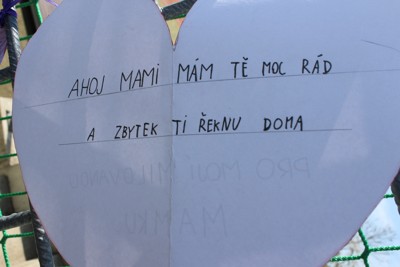 AHOJ MAMI MÁM TĚ MOC RÁD
A ZBYTEK TI ŘEKNU DOMA
PRO MOJI MILOVANOU
MAMKU